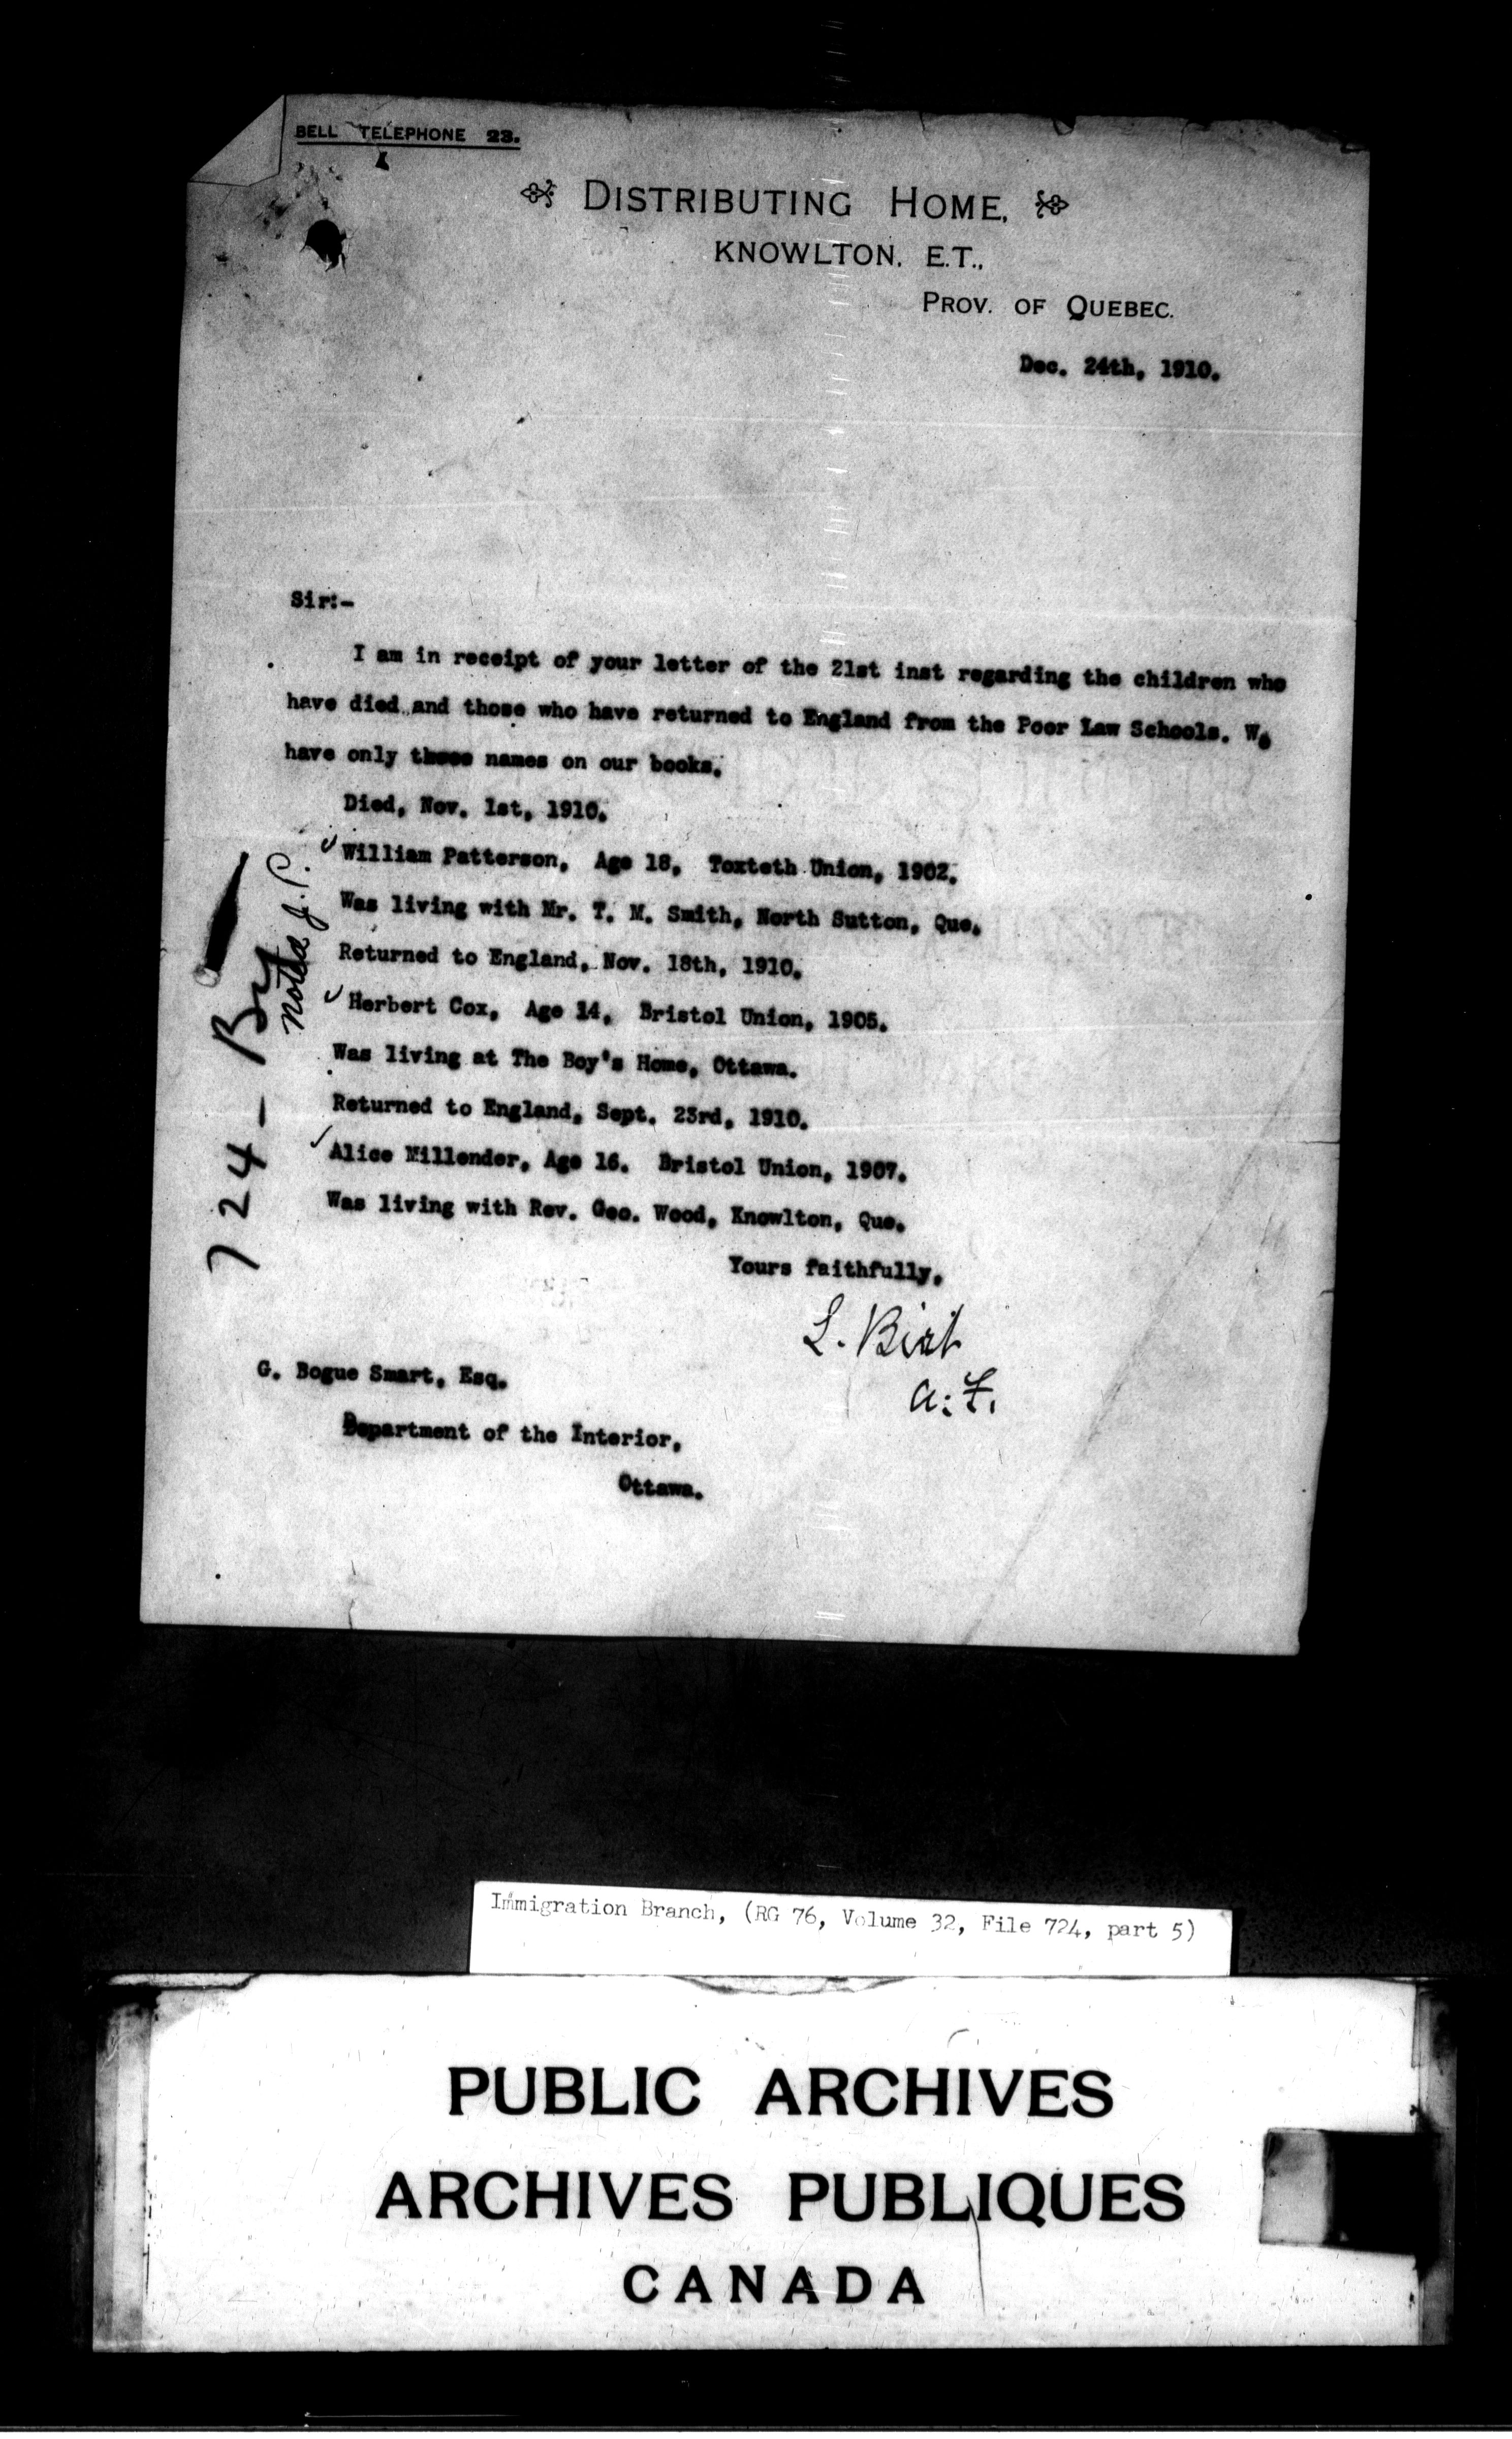 BELL TELEPHONE 23.
DISTRIBUTING HOME,
KNOWLTON. E.T.,
PROV. OF QUEBEC.
Dec. 24th, 1910.
Sir:-
I am in receipt of your letter of the 21st inst regarding the children who
have died and those who have returned to England from the Poor Law Schools. We
have only these names on our books.
Died, Nov. 1st, 1910.
William Patterson, Age 18, Toxteth Union, 1902.
Was living with Mr. T. M. Smith, North Sutton, Que.
Returned to England, Nov. 18th, 1910.
Herbert Cox, Age 14, Bristol Union, 1905.
Was living at The Boy's Home, Ottawa.
Returned to England, Sept. 23rd, 1910.
Alice Millender, Age 16. Bristol Union, 1907.
Was living with Rev. Geo. Wood, Knowlton, Que.
Yours faithfully,
L. Birt
A. F.
G. Bogue Smart, Esq.
Department of the Interior,
Ottawa.
724 -
Noted J. P.
Immigration Branch, (RG 76, Volume 32, File 724, part 5)
PUBLIC ARCHIVES
ARCHIVES PUBLIQUES
CANADA